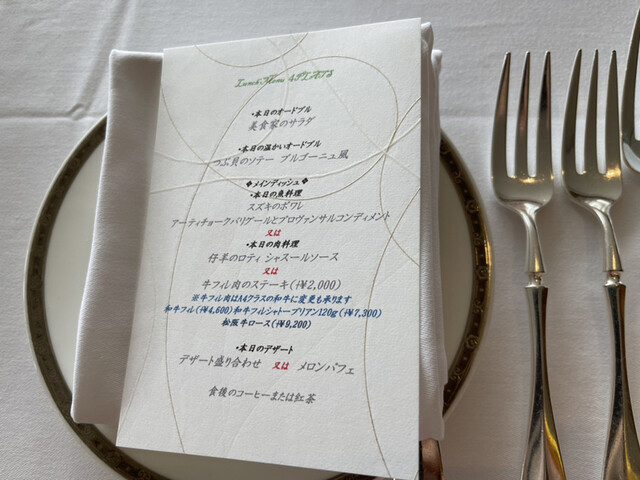 Lunch Menu 4PLATS
・本日のオードブル
美食家のサラダ
・本日の温かいオードブル
つぶ貝のソテー ブルゴーニュ風
◆メインディッシュ◆
・本日の魚料理
スズキのポワレ
アーティチョークバリグールとプロヴァンサルコンディメント
又は
・本日の肉料理
仔羊のロティ シャスールソース
又は
牛フィレ肉のステーキ(+¥2,000)
※牛フィレ肉はA4クラスの和牛に変更も承ります
和牛フィレ(+¥4,600)和牛フィレシャトーブリアン120g(+¥7,300)
松阪牛ロース(+¥9,200)
・本日のデザート
デザート盛り合わせ 又は メロンパフェ
食後のコーヒーまたは紅茶